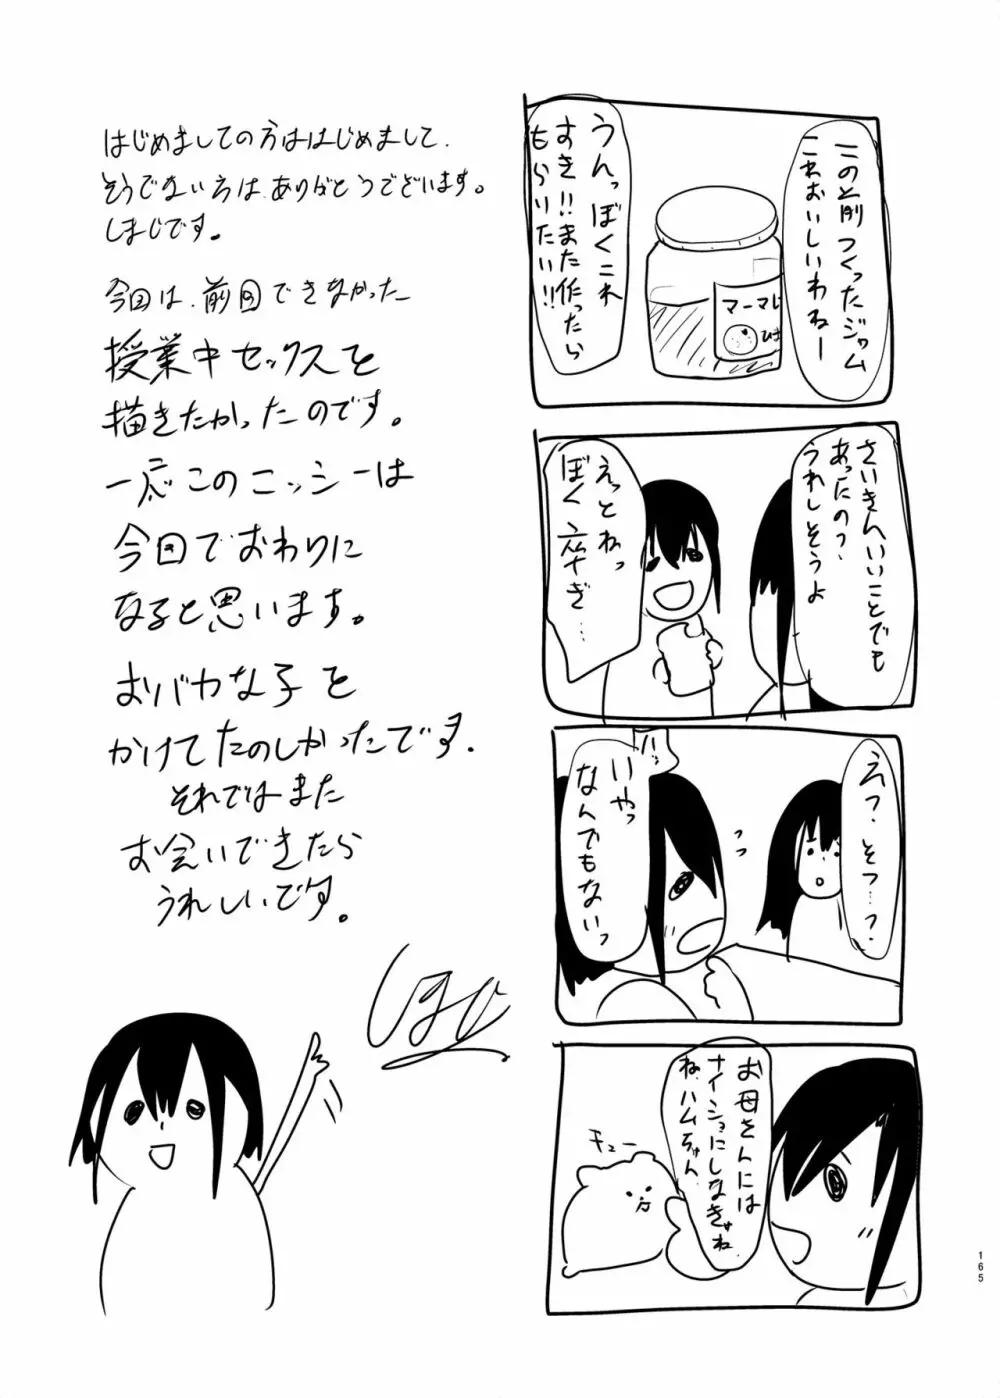 はじめましての方ははじめまして、
そうでない方は、ありがとうございます。
しまじです。
今回は、前回できなかった
授業中セックスを
描きたかったのです。
一応このニッシーは
今回でおわりに
なると思います。
おバカな子を
かけてたのしかったです。
それではまた
お会いできたら
うれしいです。
この前つくったジャム
これおいしいわねー
うんっぼくこれ
すき!!また作ったら
もらいたい!!
マーマレ
さいきんいいことでも
あったの?
うれしそうよ
えっとねっ
ぼく卒ぎ…
えっ?そつ…っ?
いやっ
なんでもないっ
お母さんには
ナイショにしなきゃね
ね、ハムちゃん
キュー
165